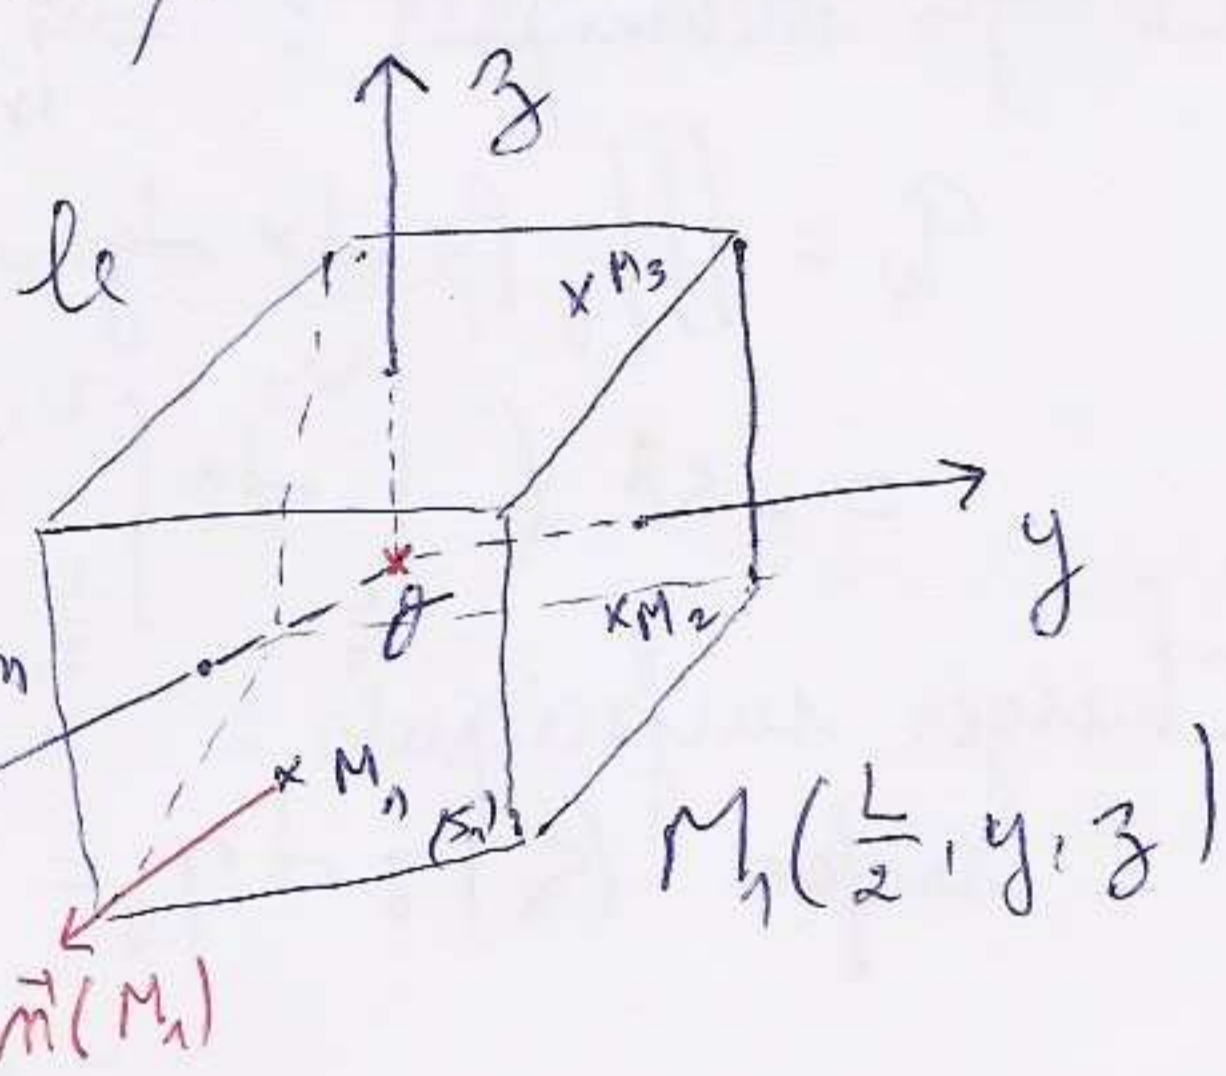 z
le
M₃
y
M₂
M₁
(S₁)
M₁(L/2, y, z)
n⃗(M₁)